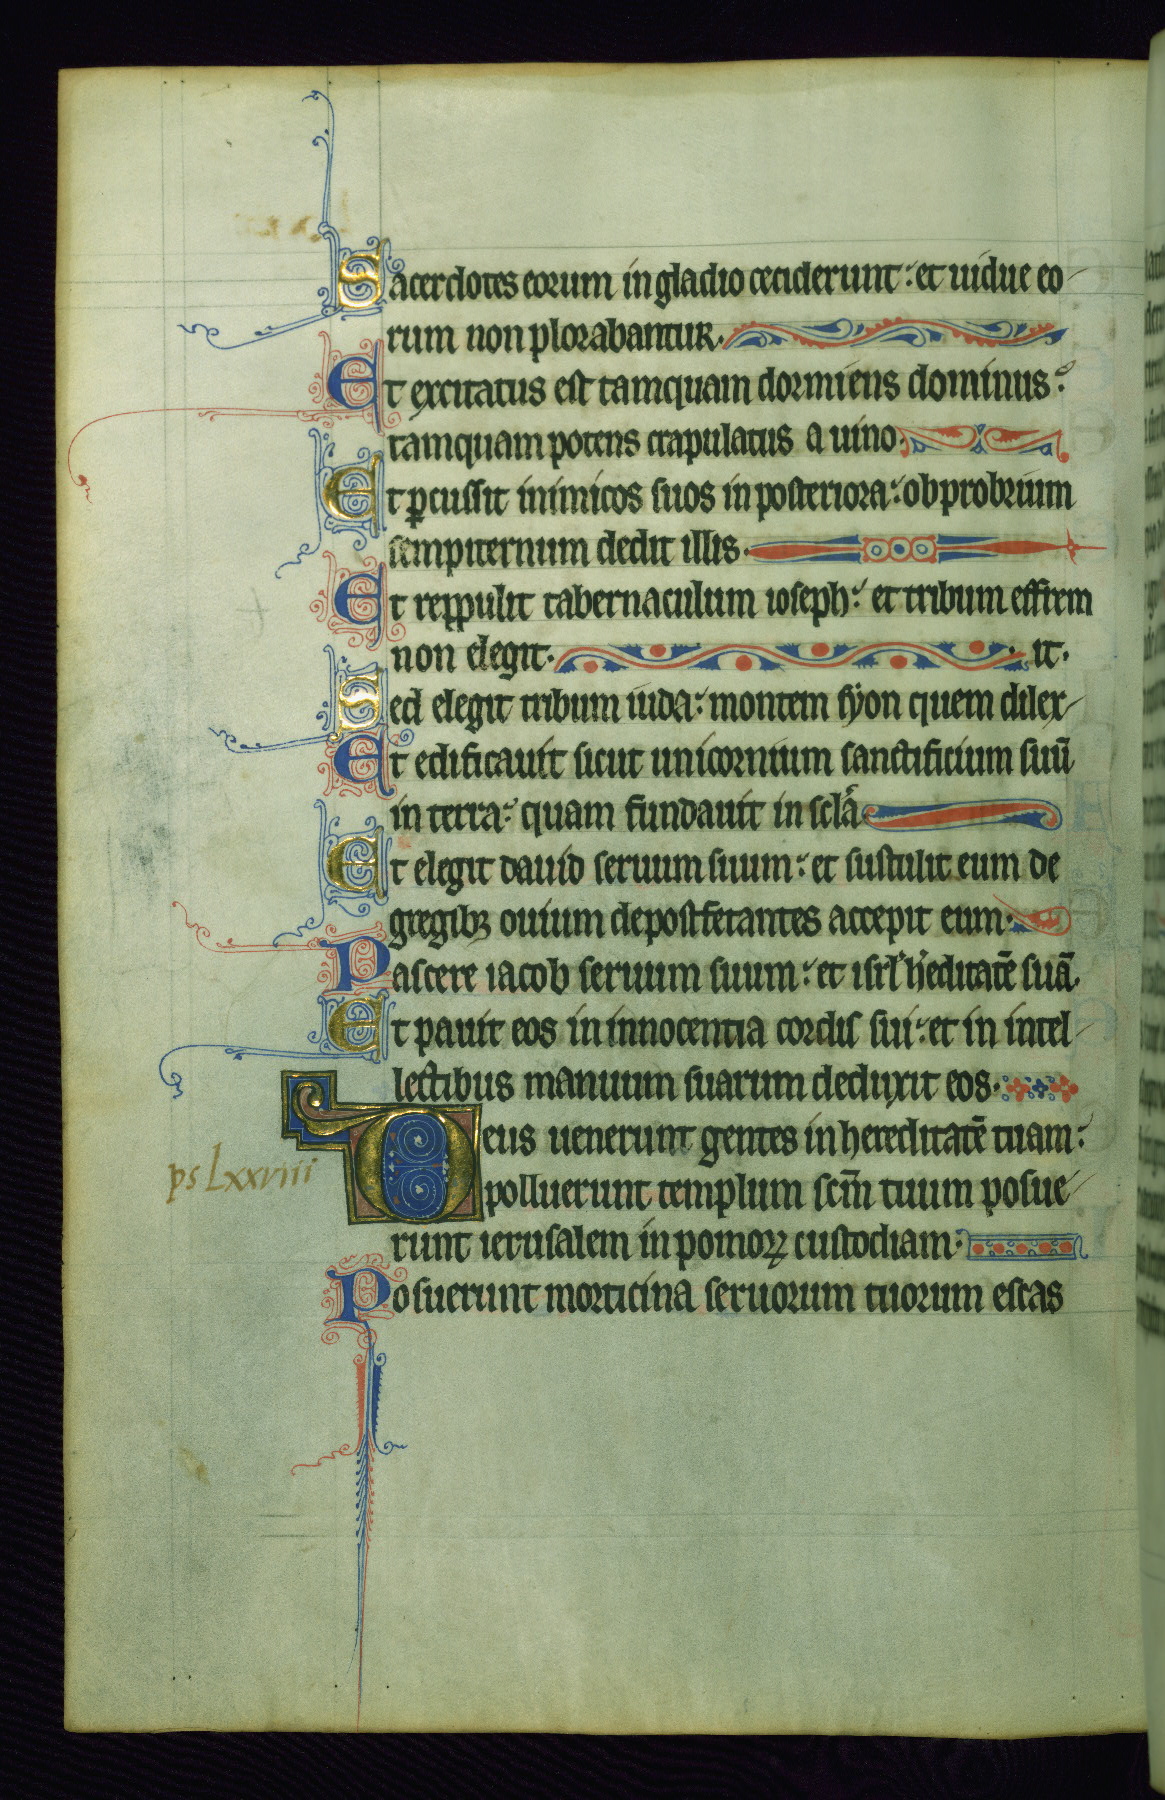 Sacerdotes eorum in gladio ceciderunt: et uidue eo
rum non plorabantur.
Et excitatus est tamquam dormiens dominus:
tamquam potens crapulatus a uino.
Et ꝑcussit inimicos suos in posteriora: obprobrium
sempiternum dedit illis.
Et reppulit tabernaculum ioseph: et tribum effrem
non elegit.
it.
Sed elegit tribum iuda: montem syon quem dilex
Et edificauit sicut unicornium sanctificium suū
in terra: quam fundauit in scl̓a
Et elegit dauid seruum suum: et sustulit eum de
gregibꝫ ouium de postfetantes accepit eum.
Pascere iacob seruum suum: et isrl̓ h̓editatē suā.
Et pauit eos in innocentia cordis sui: et in intel
lectibus manuum suarum deduxit eos.
Deus uenerunt gentes in hereditatē tuam:
polluerunt templum scm̄ tuum posue
ps Lxxviii
runt ierusalem in pomoꝝ custodiam.
Posuerunt morticina seruorum tuorum escas